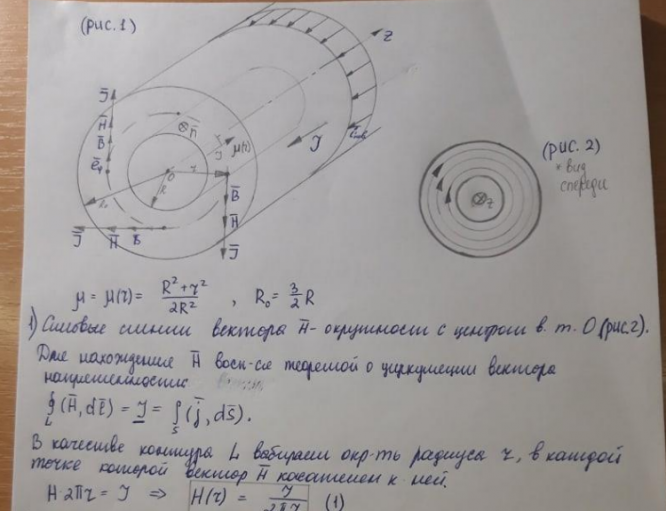 (рис. 1)
z
J̄
H̄
B̄
ē₁
n̄
μ(r)
J
r
O
R
B̄
H̄
J̄
J̄ H̄ B
(рис. 2)
* вид
спереди
z
μ = μ(r) = (R² + r²)/(2R²) , R₀ = 3/2 R
1) Силовые линии вектора H̄ - окружности с центром в т. O (рис. 2).
Для нахождения H̄ восп-ся теоремой о циркуляции вектора
напряженности
∮_L (H̄, dℓ̄) = J = ∫_S (j̄, ds̄).
В качестве контура L выбираем окр-ть радиуса r, в каждой
точке которой вектор H̄ касателен к ней.
H · 2πr = J ⇒ H(r) = J/(2πr) (1)